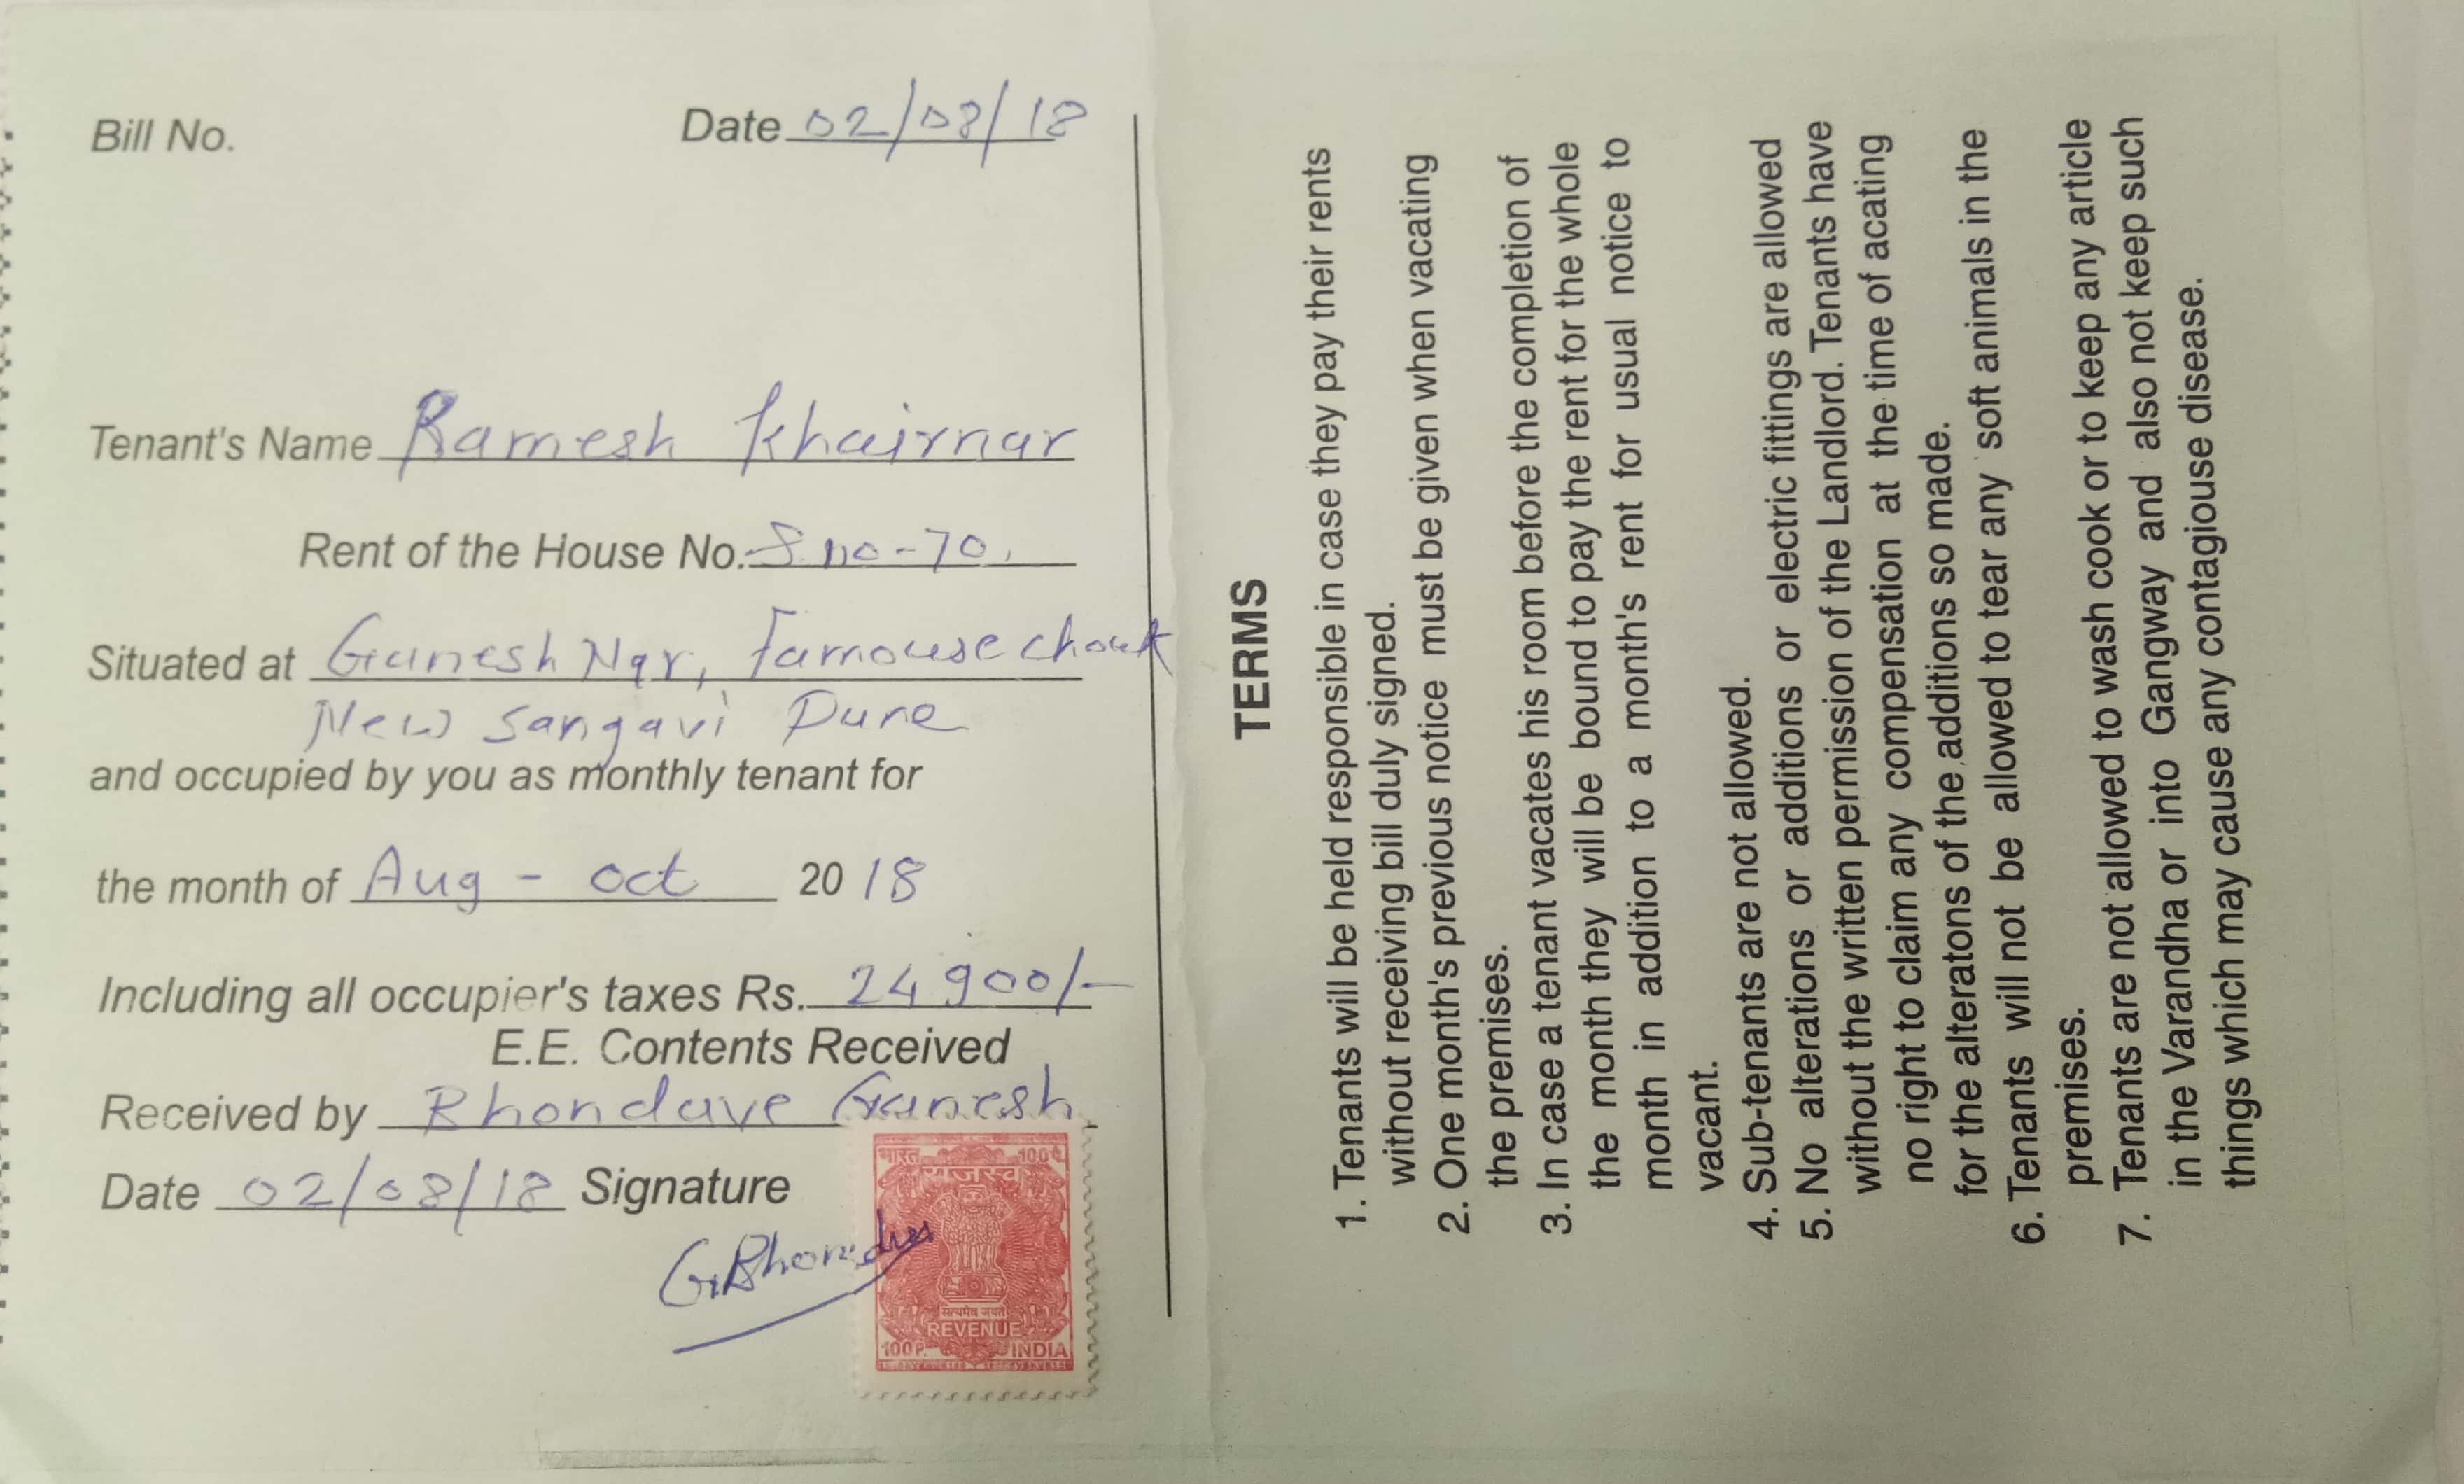 Bill No.
Date 02/08/18
Tenant's Name Ramesh Khairnar
Rent of the House No. S no-70.
Situated at Ganesh Ngr, Famouse chouk
New Sangavi Pune
and occupied by you as monthly tenant for
the month of Aug - oct 2018
Including all occupier's taxes Rs. 24900/-
E.E. Contents Received
Received by Bhondave Ganesh
Date 02/08/18 Signature
भारत 100 पै
राजस्व
सत्यमेव जयते
REVENUE
100 P. INDIA
TERMS
1. Tenants will be held responsible in case they pay their rents
without receiving bill duly signed.
2. One month's previous notice must be given when vacating
the premises.
3. In case a tenant vacates his room before the completion of
the month they will be bound to pay the rent for the whole
month in addition to a month's rent for usual notice to
vacant.
4. Sub-tenants are not allowed.
5. No alterations or additions or electric fittings are allowed
without the written permission of the Landlord. Tenants have
no right to claim any compensation at the time of acating
for the alteratons of the additions so made.
6. Tenants will not be allowed to tear any soft animals in the
premises.
7. Tenants are not allowed to wash cook or to keep any article
in the Varandha or into Gangway and also not keep such
things which may cause any contagiouse disease.